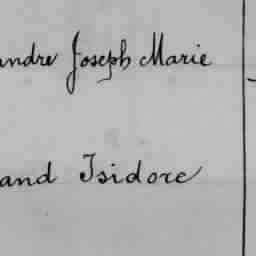 andre Joseph Marie
and Isidore